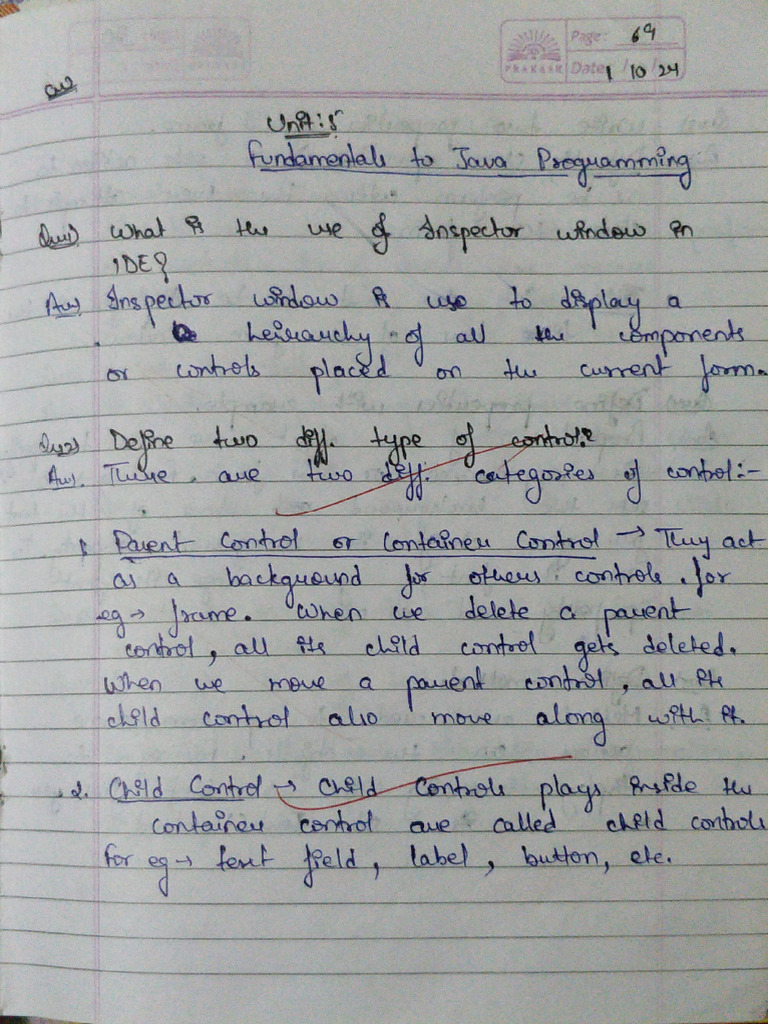 PRAKASH
Page: 69
Date: 1 10 24
Unit:5
Fundamentals to Java Programming
Ques1) What is the use of Inspector window in
IDE?
Ans) Inspector window is use to display a
heirarchy of all the components
or controls placed on the current form.
Ques2) Define two diff. type of control?
Ans. There are two diff. categories of control:-
1. Parent Control or Container Control → They act
as a background for others controls. for
eg → frame. When we delete a parent
control, all its child control gets deleted.
When we move a parent control, all its
child control also move along with it.
2. Child Control → Child Controls plays inside the
container control are called child controls
for eg → text field, label, button, etc.